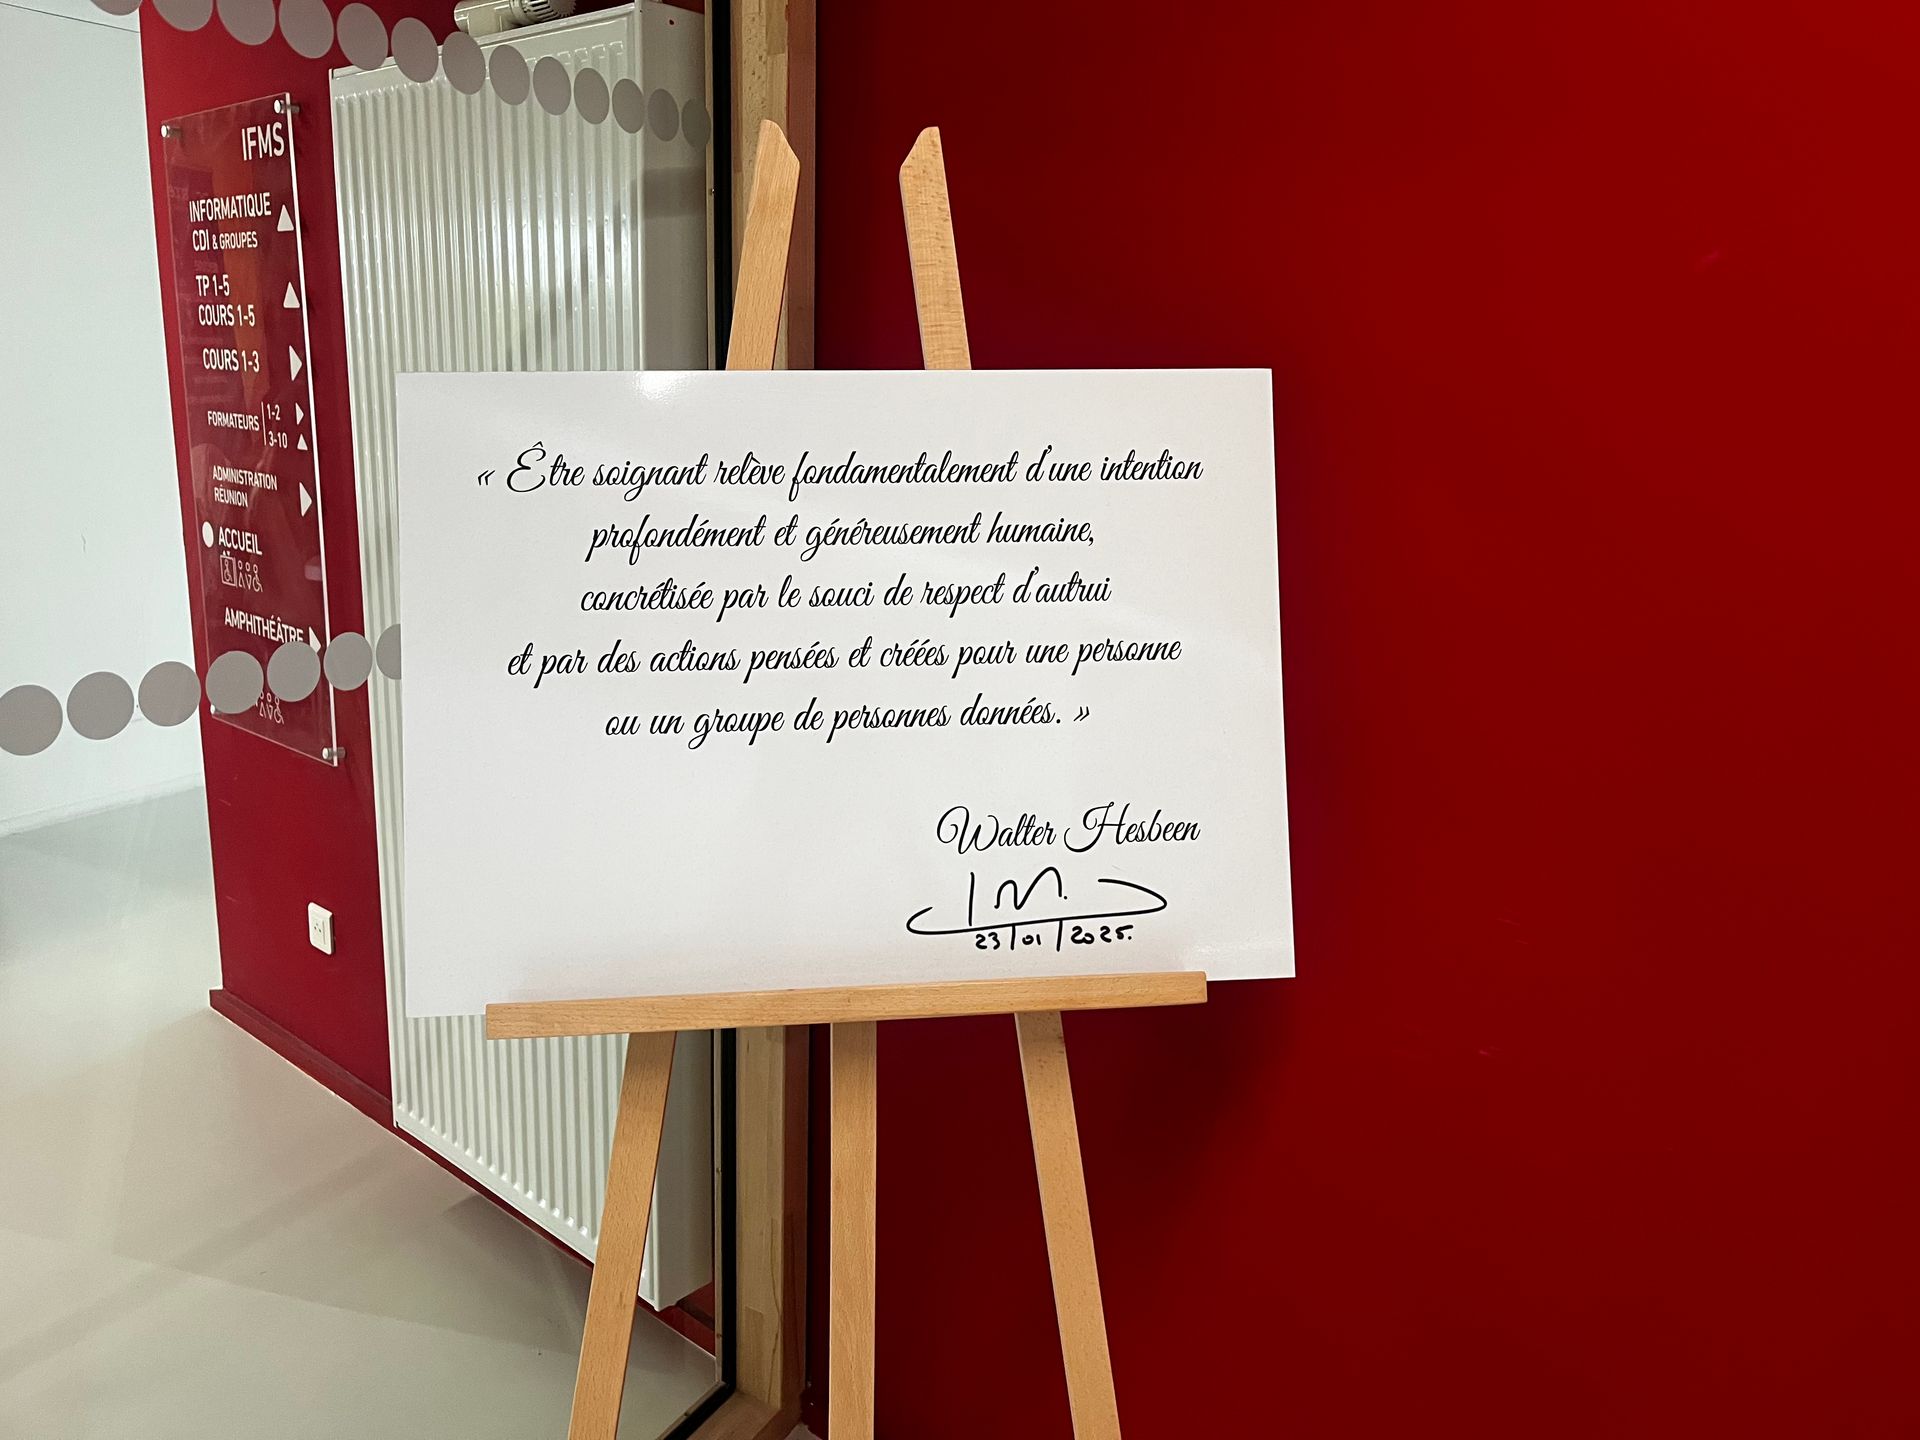 IFMS
INFORMATIQUE
CDI & GROUPES
TP 1-5
COURS 1-5
COURS 1-3
FORMATEURS 1-2
3-10
ADMINISTRATION
RÉUNION
ACCUEIL
AMPHITHÉÂTRE
« Être soignant relève fondamentalement d'une intention
profondément et généreusement humaine,
concrétisée par le souci de respect d'autrui
et par des actions pensées et créées pour une personne
ou un groupe de personnes données. »
Walter Hesbeen
23/01/2025.